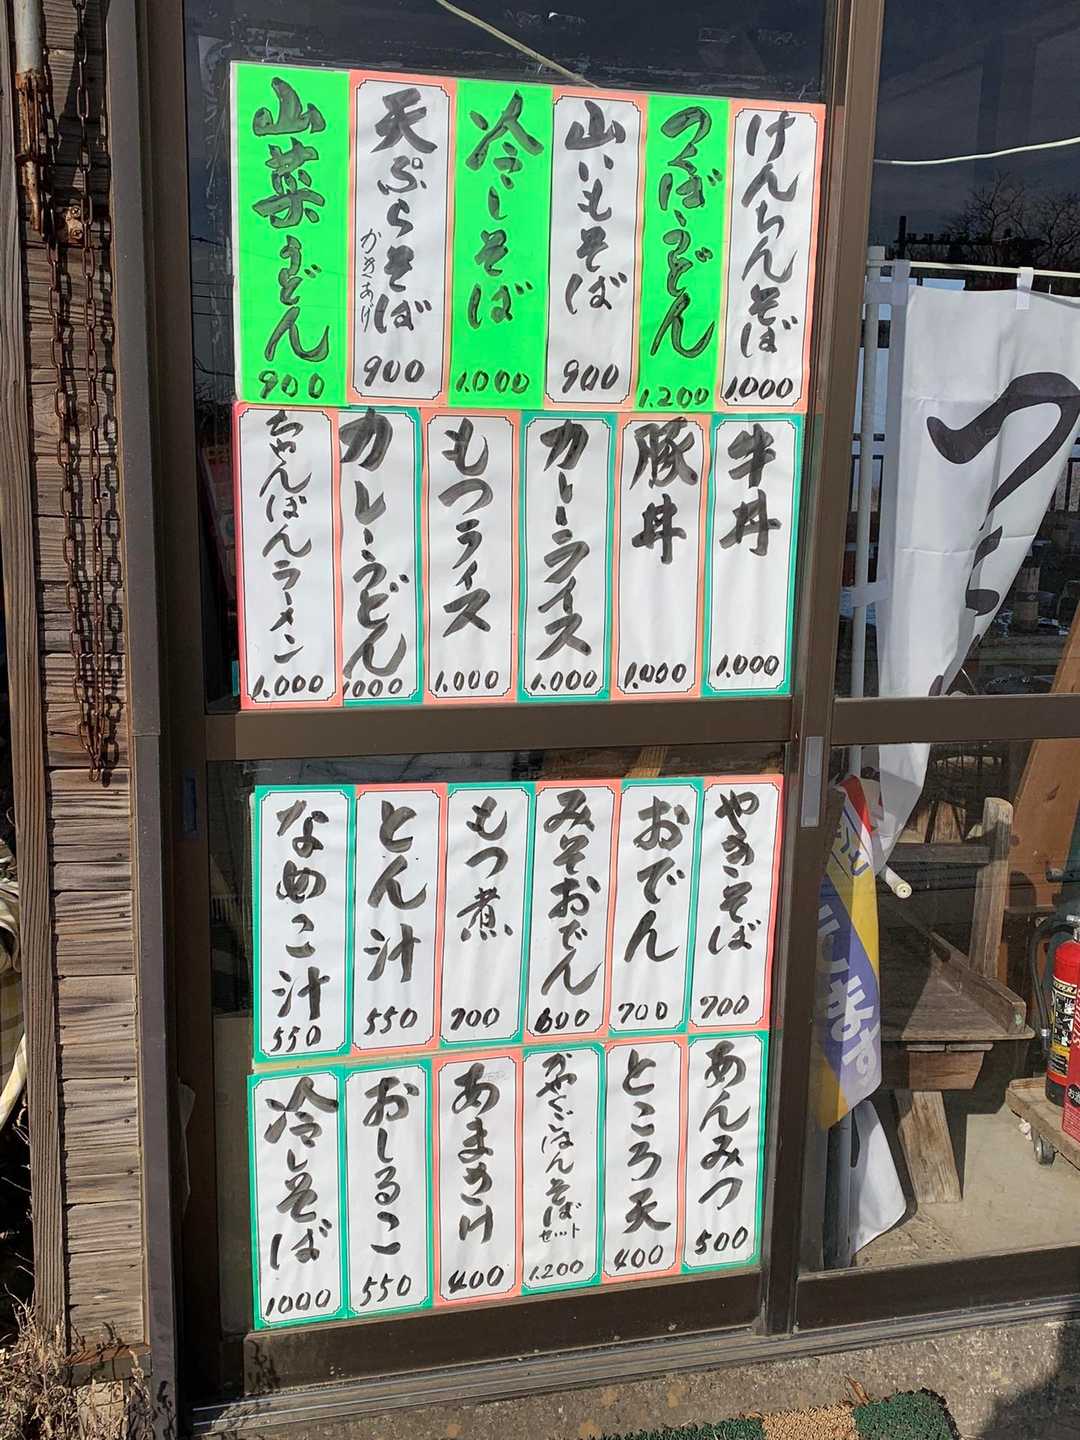 けんちんそば
1.000
つくばうどん
1.200
山いもそば
900
冷しそば
1.000
天ぷらそば
かきあげ
900
山菜うどん
900
牛丼
1.000
豚丼
1.000
カレーライス
1.000
もつライス
1.000
カレーうどん
1000
ちゃんぽんラーメン
1.000
やきそば
700
おでん
700
みそおでん
600
もつ煮
700
とん汁
550
なめこ汁
550
あんみつ
500
ところ天
400
そば
セット
1.200
あまさけ
400
おしるこ
550
冷しそば
1000